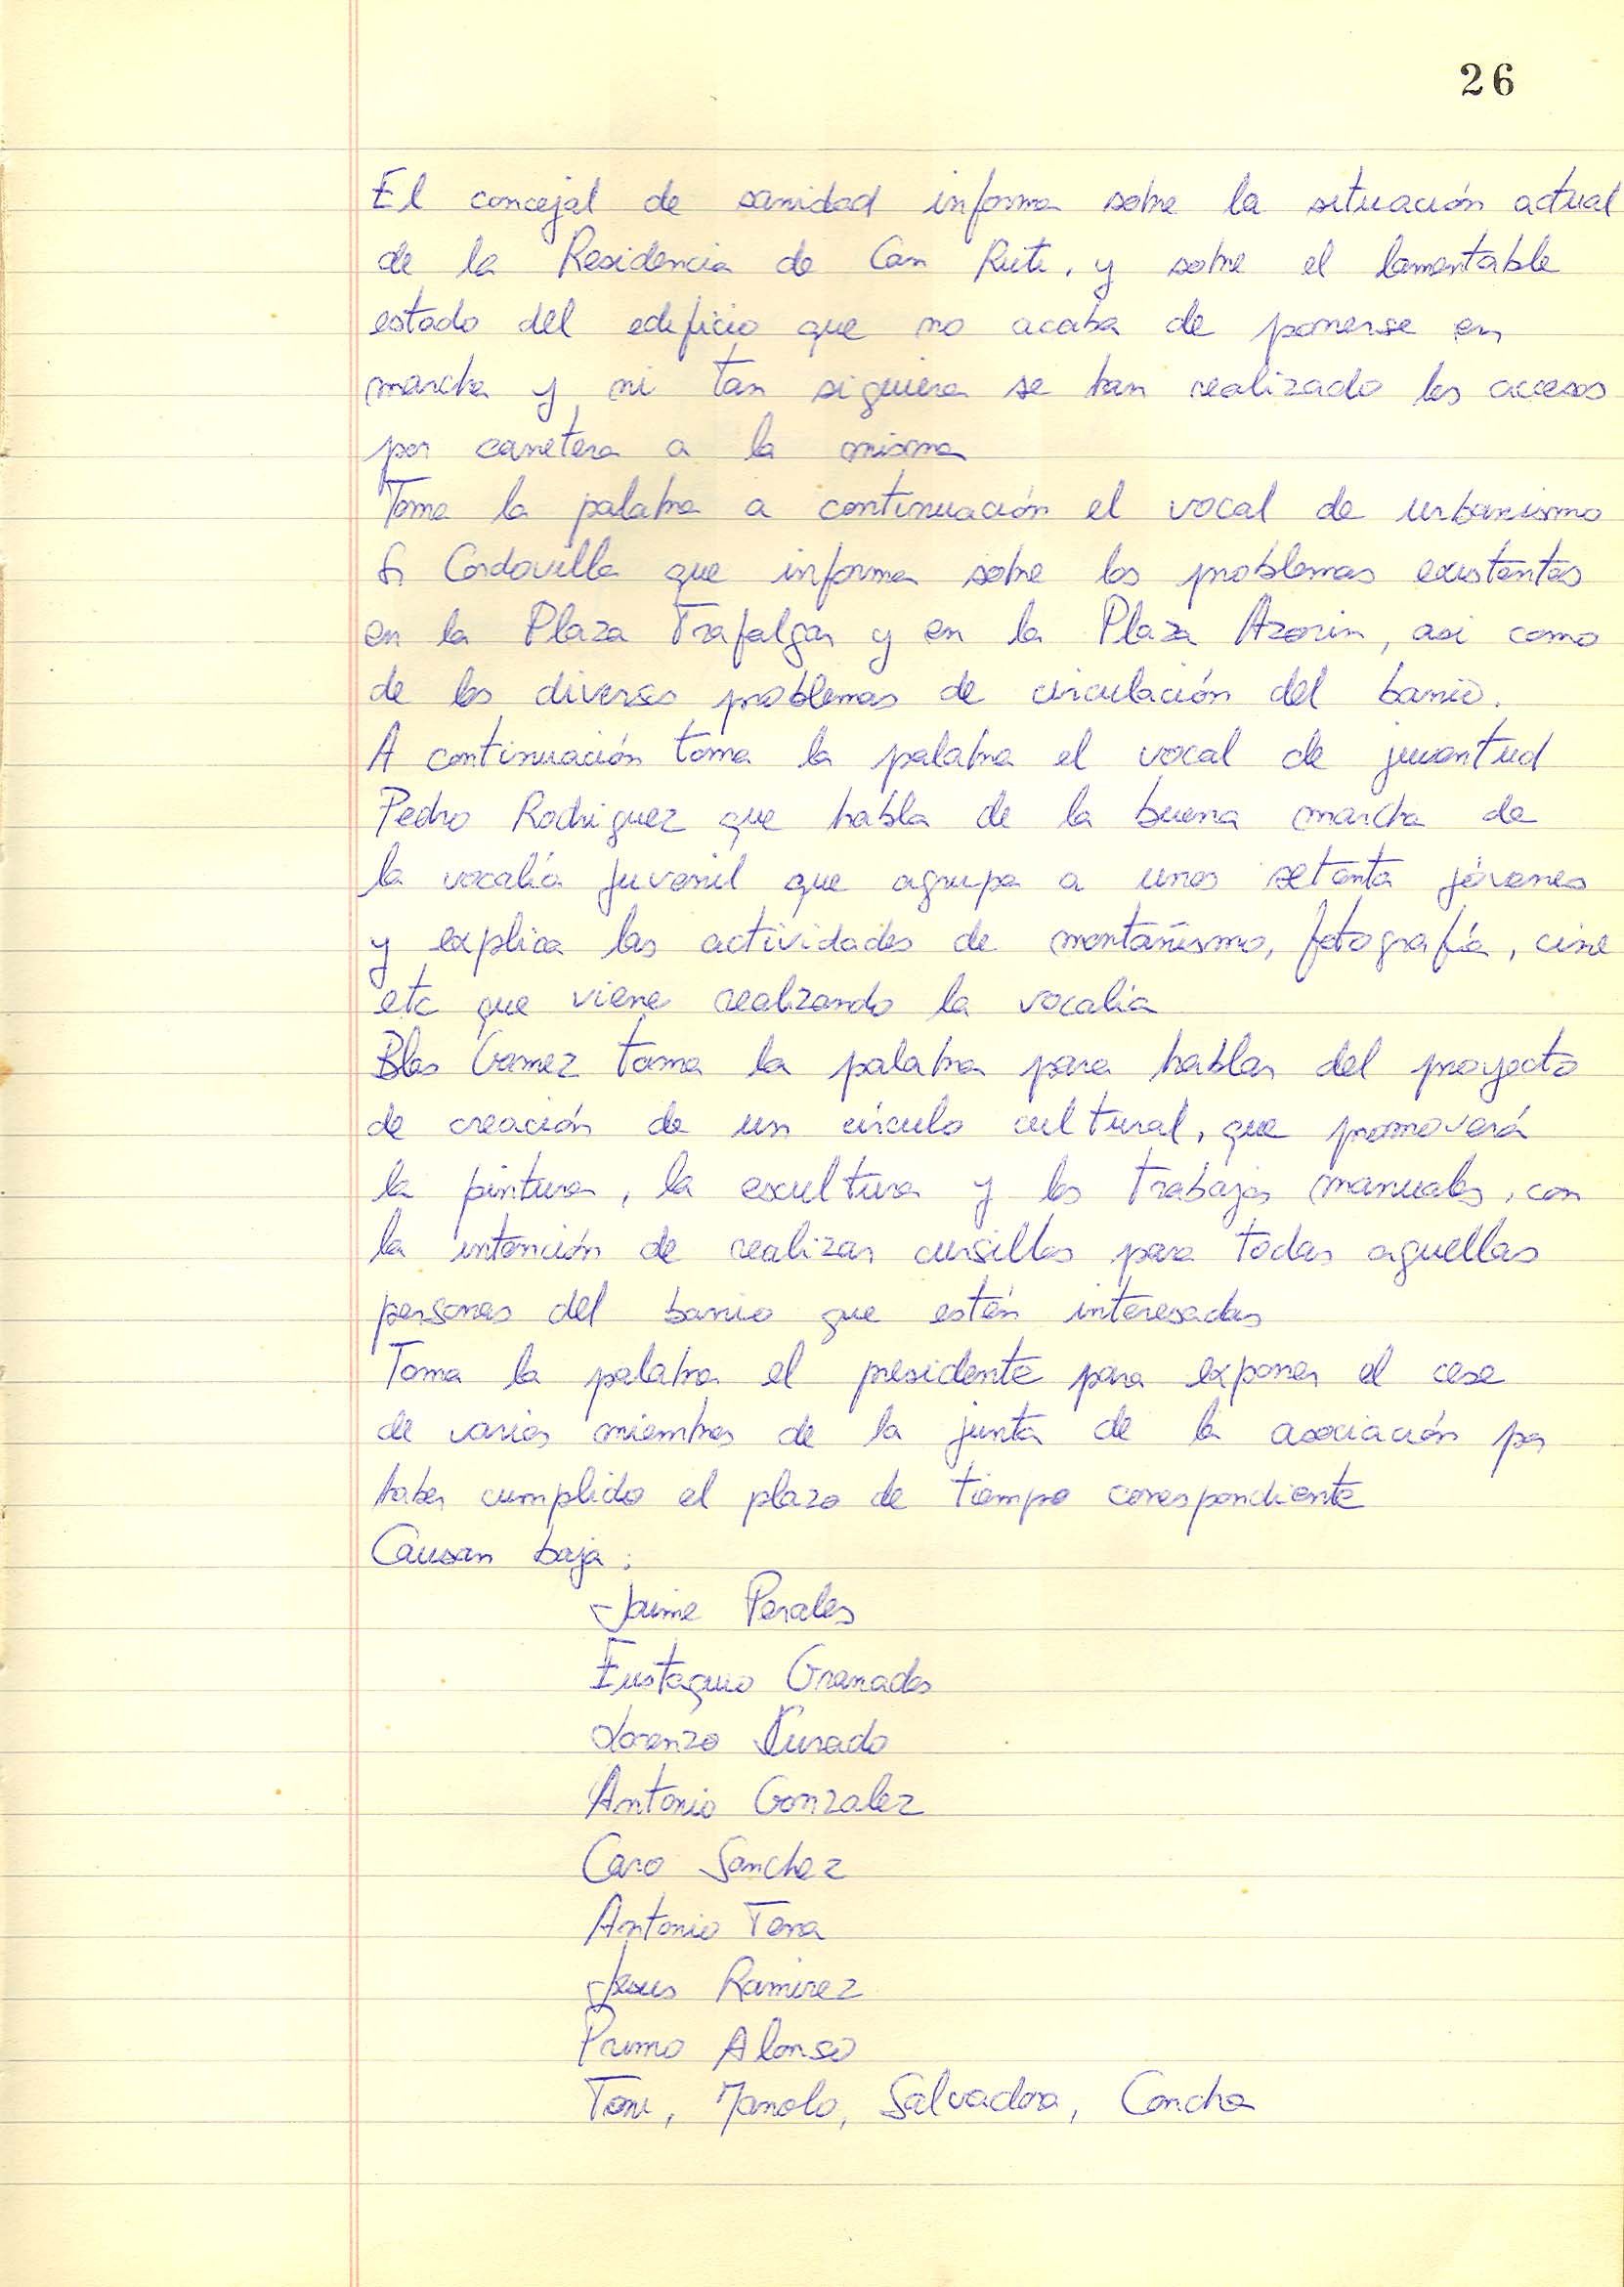 26
El concejal de sanidad informa sobre la situación actual
de la Residencia de Can Ruti, y sobre el lamentable
estado del edificio que no acaba de ponerse en
marcha y ni tan siquiera se han realizado los accesos
por carretera a la misma
Toma la palabra a continuación el vocal de urbanismo
Sr Cordovilla que informa sobre los problemas existentes
en la Plaza Trafalgar y en la Plaza Azorin, asi como
de los diversos problemas de circulación del barrio.
A continuación toma la palabra el vocal de juventud
Pedro Rodriguez que habla de la buena marcha de
la vocalía juvenil que agrupa a unos setenta jóvenes
y explica las actividades de montañismo, fotografía, cine
etc que viene realizando la vocalia
Blas Gamez toma la palabra para hablar del proyecto
de creación de un círculo cultural, que promoverá
la pintura, la escultura y los trabajos manuales, con
la intención de realizar cursillos para todas aquellas
personas del barrio que estén interesadas
Toma la palabra el presidente para exponer el cese
de varios miembros de la junta de la asociación por
haber cumplido el plazo de tiempo correspondiente
Causan baja:
Jaime Perales
Eustaquio Granados
Lorenzo Jurado
Antonio Gonzalez
Caro Sanchez
Antonio Tena
Jesus Ramirez
Primo Alonso
Toni, Manolo, Salvadora, Concha